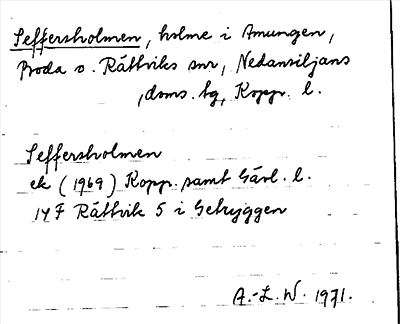 Seffersholmen, holme i Amungen,
Boda o. Rättviks snr, Nedansiljans
doms. tg, Kopp. l.
Seffersholmen
ek (1969) Kopp. samt Gävl. l.
14 F Rättvik 5 i Getryggen
A.-L. W. 1971.